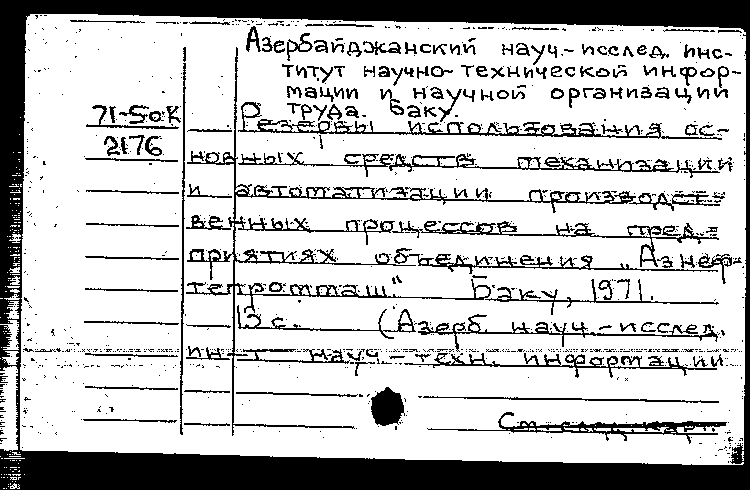 Азербайджанский науч.-исслед. инс-
титут научно-технической инфор-
мации и научной организации
труда. Баку.
71-50К
2176
Резервы использования ос-
новных средств механизации
и автоматизации производст-
венных процессов на пред-
приятиях объединения „Азнеф-
темаш" Баку, 1971.
13 с. (Азерб. науч.-исслед.
ин-т науч.-техн. информации
См. след. карт.